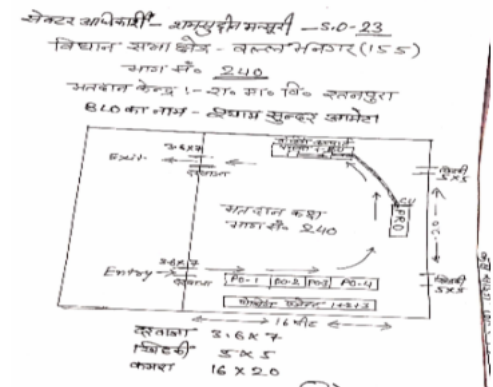 सेक्टर अधिकारी - शमसुद्दीन मन्सूरी - S.O-23
विधान सभा क्षेत्र - वल्लभनगर (155)
भाग सं० 240
मतदान केन्द्र :- रा० मा० वि० रतनपुरा
BLO का नाम - श्याम सुन्दर आमेटा
3.6x7
Exit
दरवाजा
खिड़की
5x5
CU
PRO
मतदान कक्ष
भाग सं० 240
3.6x7
Entry
दरवाजा
PO-1 PO-2 PO-3 PO-4
खिड़की
5x5
पोलिंग एजेन्ट 1+2+3
16 फीट
दरवाजा 3.6 x 7
खिड़की 5 x 5
कमरा 16 x 20